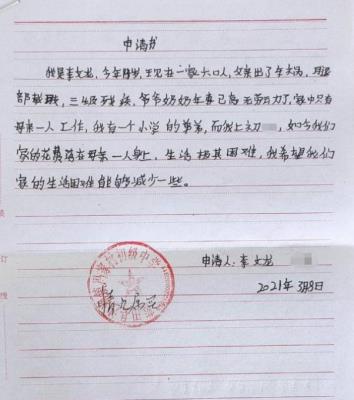 申请书
我是李文龙，今年 岁，现在一家六口人，父亲出了车祸，
部 ，三级残疾，爷爷奶奶年事已高无劳动力了，家中只有
母亲一人工作，我有一个小学的弟弟，而我上初 ，如今我们
家的花费落在母亲一人身上，生活极其困难，我希望我们
家的生活困难能够减少一些。
申请人：李文龙
2021年3月8日
初级中学
情况属实